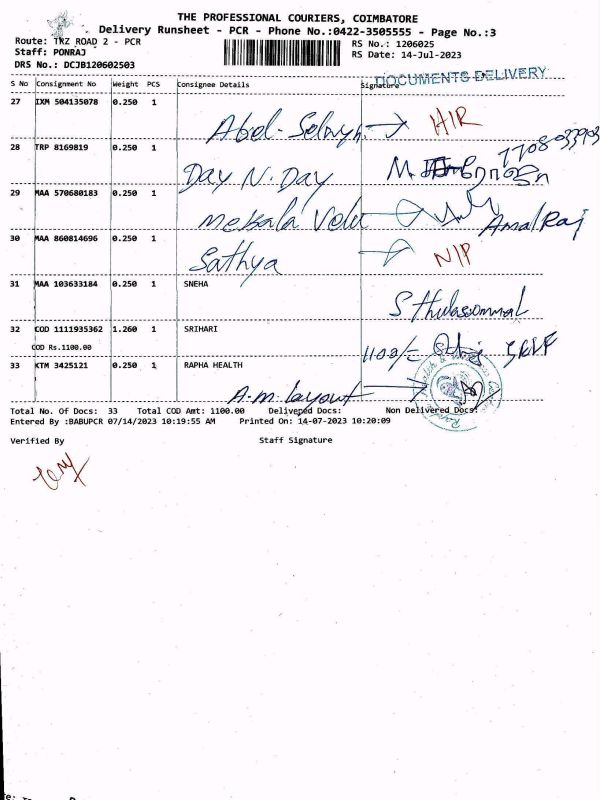 THE PROFESSIONAL COURIERS, COIMBATORE
Delivery Runsheet - PCR - Phone No.:0422-3505555 - Page No.:3
Route: TRZ ROAD 2 - PCR
RS No.: 1206025
Staff: PONRAJ
RS Date: 14-Jul-2023
DRS No.: DCJB120602503
DOCUMENTS DELIVERY
S No Consignment No Weight PCS Consignee Details Signature
27 IXM 504135078 0.250 1
Abel- HIR
28 TRP 8169819 0.250 1
Day N. Day M. 7708033903
29 MAA 570680183 0.250 1
Mekala Velu AmalRaj
30 MAA 860814696 0.250 1
Sathya NIP
31 MAA 103633184 0.250 1 SNEHA
32 COD 1111935362 1.260 1 SRIHARI
COD Rs.1100.00
1100/= SELF
33 KTM 3425121 0.250 1 RAPHA HEALTH
A.m. layout
Total No. Of Docs: 33 Total COD Amt: 1100.00 Delivered Docs: Non Delivered Docs:
Entered By :BABUPCR 07/14/2023 10:19:55 AM Printed On: 14-07-2023 10:20:09
Verified By Staff Signature